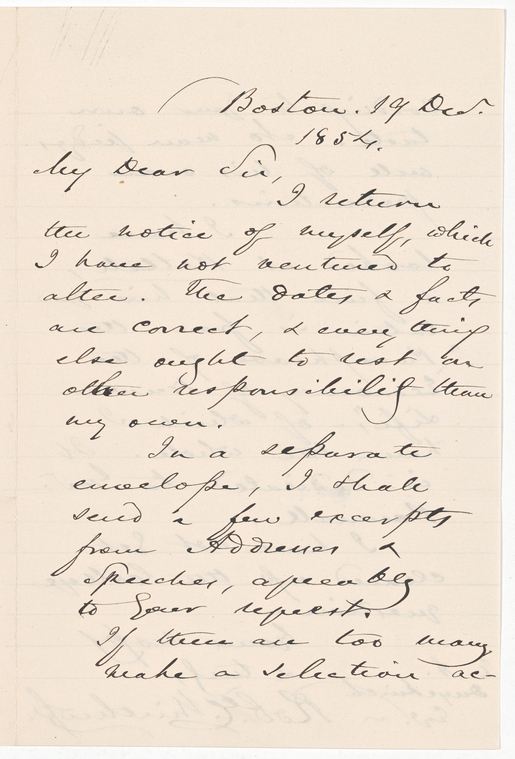 Boston. 19 Dec.
1854.
My Dear Sir,
I return
the notice of myself, which
I have not ventured to
alter. The dates & facts
are correct, & every thing
else ought to rest on
other responsibility than
my own.
In a separate
envelope, I shall
send a few excerpts
from Addresses &
Speeches, agreeably
to your request.
If there are too many
make a selection ac-